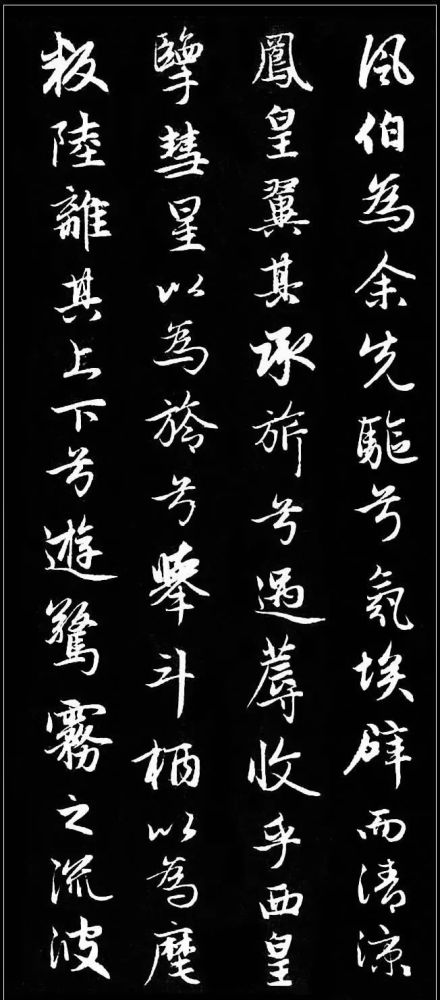 風伯為余先驅兮氛埃辟而清涼
鳳皇翼其承旂兮遇蓐收乎西皇
擥彗星以為旍兮舉斗柄以為麾
叛陸離其上下兮遊驚霧之流波